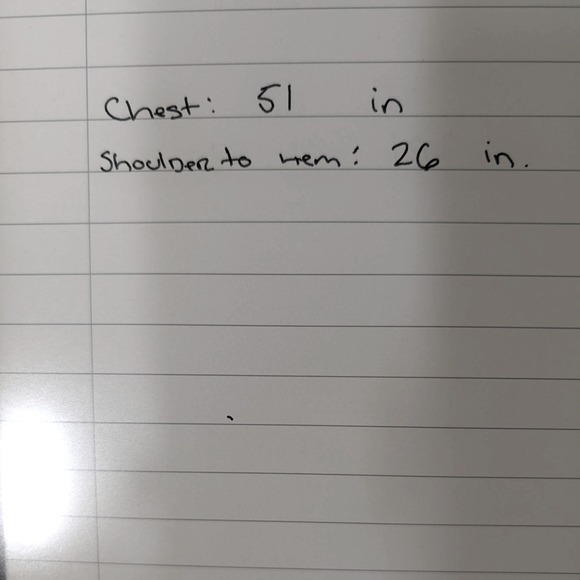 Chest: 51 in
Shoulder to Hem: 26 in.